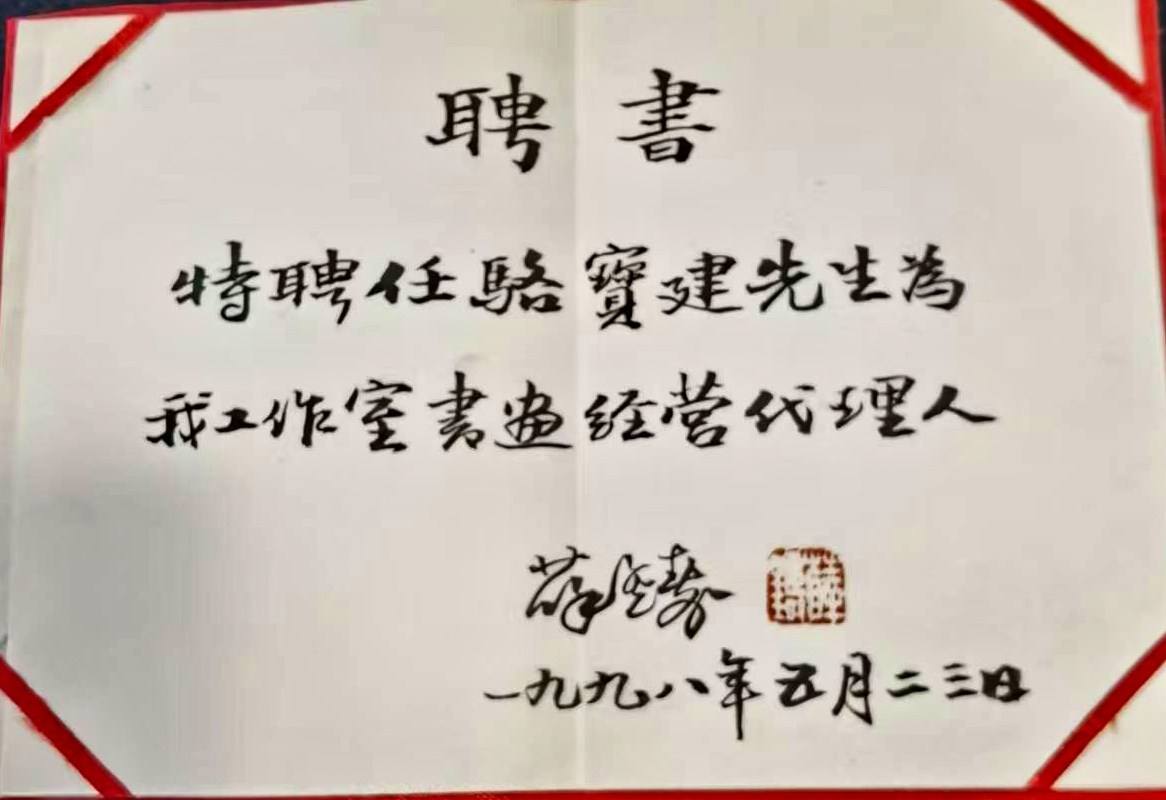 聘書
特聘任駱寶建先生為
我工作室書画经营代理人
薛
一九九八年五月二三日